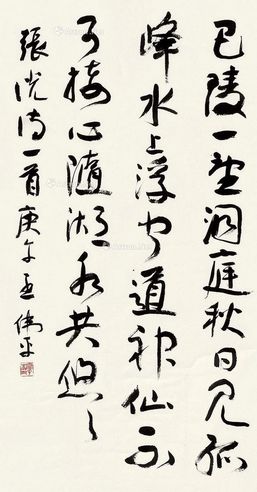 巴陵一望洞庭秋日見孤
峰水上浮聞道神仙不
可接心隨湖水共悠々
張說詩一首庚午